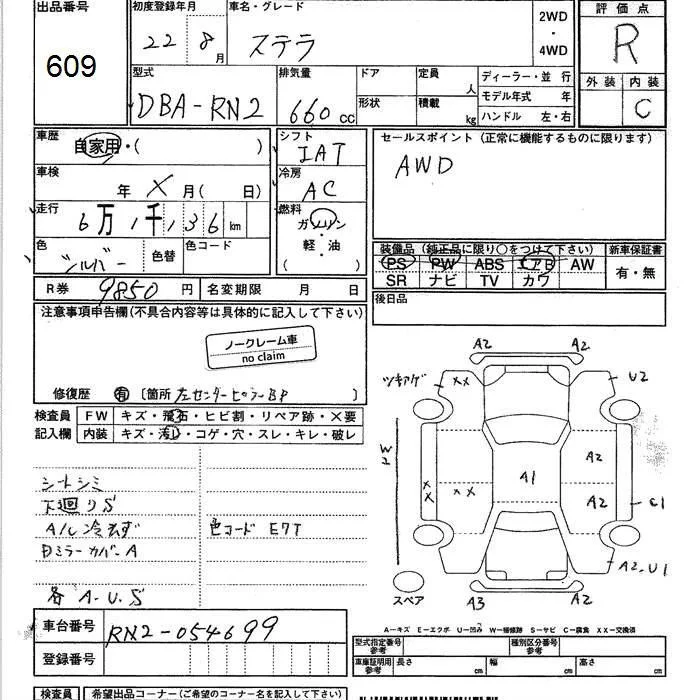 出品番号 初度登録年月 車名・グレード 2WD・4WD 評価点
609 22 8月 ステラ R
型式 排気量 ドア 定員 人 ディーラー・並 行 外装 内装
DBA-RN2 660cc 形状 積載 kg モデル年式 年 C
ハンドル 左・右
車歴 自家用・( ) シフト IAT セールスポイント (正常に機能するものに限ります)
車検 年 X月( 日) 冷房 AC AWD
走行 6万1千136km 燃料 ガソリン・軽・油 ( )
色 シルバー 色替 色コード
装備品 (純正品に限り○をつけて下さい) 新車保証書
PS PW ABS エアB AW 有・無
SR ナビ TV カワ
R券 9850円 名変期限 月 日 後日品
注意事項申告欄(不具合内容等は具体的に記入して下さい)
ノークレーム車
no claim
修復歴 有 〔箇所 左センターピラーBP 〕
検査員 FW キズ・飛石・ヒビ割・リペア跡・X要
記入欄 内装 キズ・汚れ・コゲ・穴・スレ・キレ・破レ
シートシミ
下廻りS
A/C冷えず 色コード E7T
ミラーカバーA
各 A・U、S
A2 A2
ツキアゲ XX U2
W2 A2
XX XX A1 A2 C1
A2、U1
スペア A3 A2
A-キズ E-エクボ U-凹み W-補修跡 S-サビ C-腐食 XX-交換済
車台番号 RN2-054699 型式指定番号 参考 種別区分番号 参考
登録番号 車庫証明用 参考 長さ cm 幅 cm 高さ cm
検査員 希望出品コーナー(ご希望のコーナー名を記入して下さい)